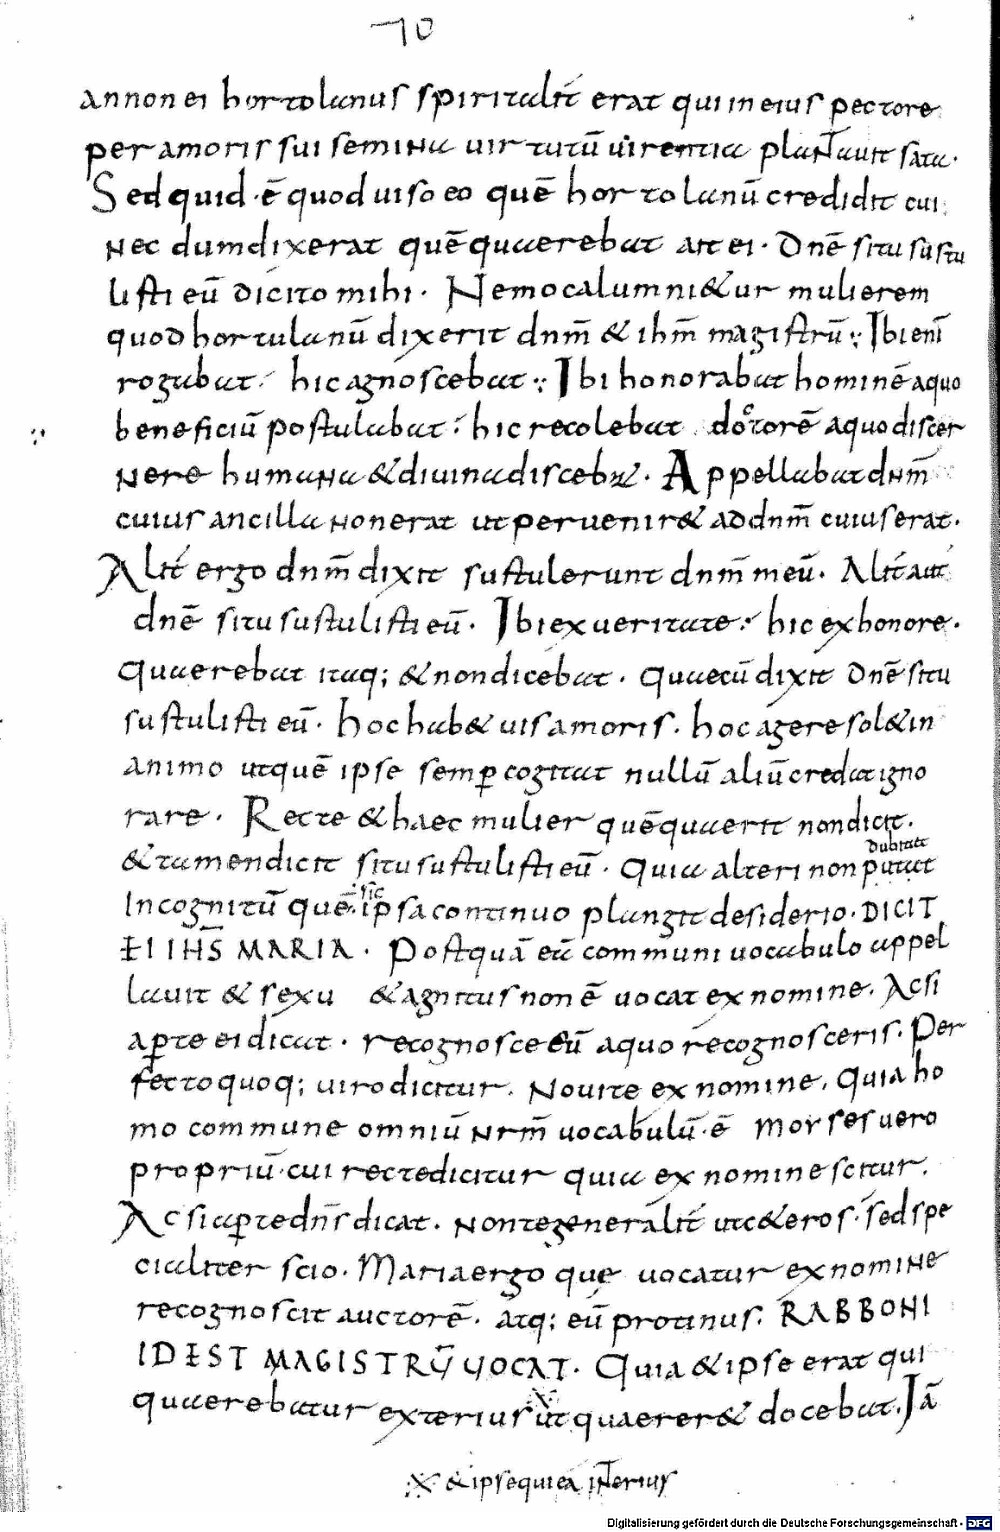 70
annon ei hortolanus spiritalit̄ erat qui in eius pectore
per amoris sui semina uirtutū uirentia plantauit sata.
Sed quid ē quod uiso eo quē hortolanū credidit cui
nec dum dixerat quē quaerebat ait ei. Dn̄e si tu sustu
listi eū dicito mihi. Nemo calumni&ur mulierem
quod hortulanū dixerit dnm̄ & ihm̄ magistrū; Ibi enī
rogabat. hic agnoscebat; Ibi honorabat hominē a quo
beneficiū postulabat. hic recolebat doctorē a quo discer
nere humana & diuina disceb&. Appellabat dnm̄
cuius ancilla non erat ut peruenir& ad dnm̄ cuius erat.
Alit̄ ergo dnm̄ dixit sustulerunt dnm̄ meū. Alit̄ aut̄
dn̄e si tu sustulisti eū. Ibi ex ueritate. hic ex honore.
Quaerebat itaq; & non dicebat. Quaecū dixit Dn̄e si tu
sustulisti eū. hoc hab& uis amoris. hoc agere sol& in
animo ut quē ipse semꝑ cogitat nullū aliū credat igno
rare. Recte & haec mulier quē quaerit non dicit.
& tamen dicit si tu sustulisti eū. Quia alteri non putat
dubitat
Incognitū quē sic ipsa continuo plangit desiderio. DICIT
EI IHS̄ MARIA. Postquā eā communi uocabulo appel
lauit & sexu & agnitus non ē uocat ex nomine. Ac si
aꝑte ei dicat. recognosce eū a quo recognosceris. Per
fecto quoq; uiro dicitur. Noui te ex nomine. Quia ho
mo commune omniū nrm̄ uocabulū ē Moyses uero
propriū. cui recte dicitur quia ex nomine scitur.
Ac si aꝑte dn̄s dicat. Non te generalit̄ ut c&eros. sed spe
cialiter scio. Maria ergo quę uocatur ex nomine
recognoscit auctorē. atq; eū protinus. RABBONI
ID EST MAGISTRŪ UOCAT. Quia & ipse erat qui
quaerebatur exterius ut quaerer& docebat. Iā
& ipse qui eā interius
Digitalisierung gefördert durch die Deutsche Forschungsgemeinschaft - DFG